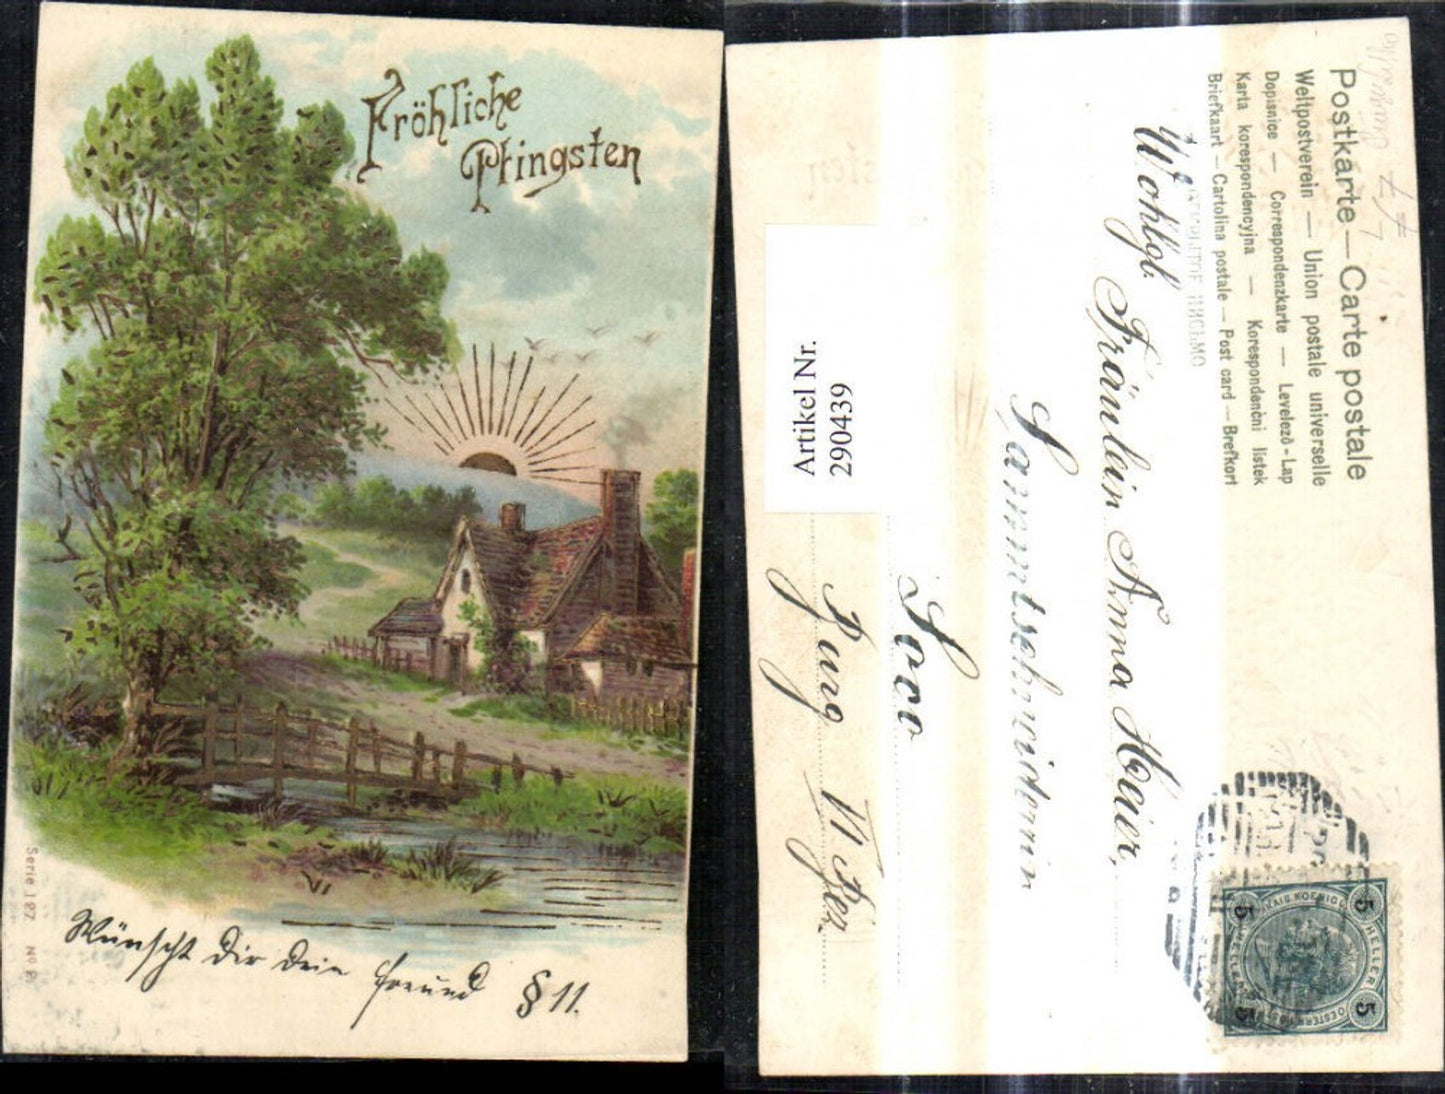 Fröhliche
Pfingsten
Serie 127.
Wünscht dir dein freund § 11.
Postkarte — Carte postale
Weltpostverein — Union postale universelle
Dopisnice — Correspondenzkarte — Levelező-Lap
Karta korespondencyjna — Korespondenční listek
Briefkaart — Cartolina postale — Post card — Brefkort
ПИСЬМО
Wohlgb.
Fräulein Anna Heier,
Sammtschneiderin
Artikel Nr.
290439
5 HELLER 5
5 HELLER 5